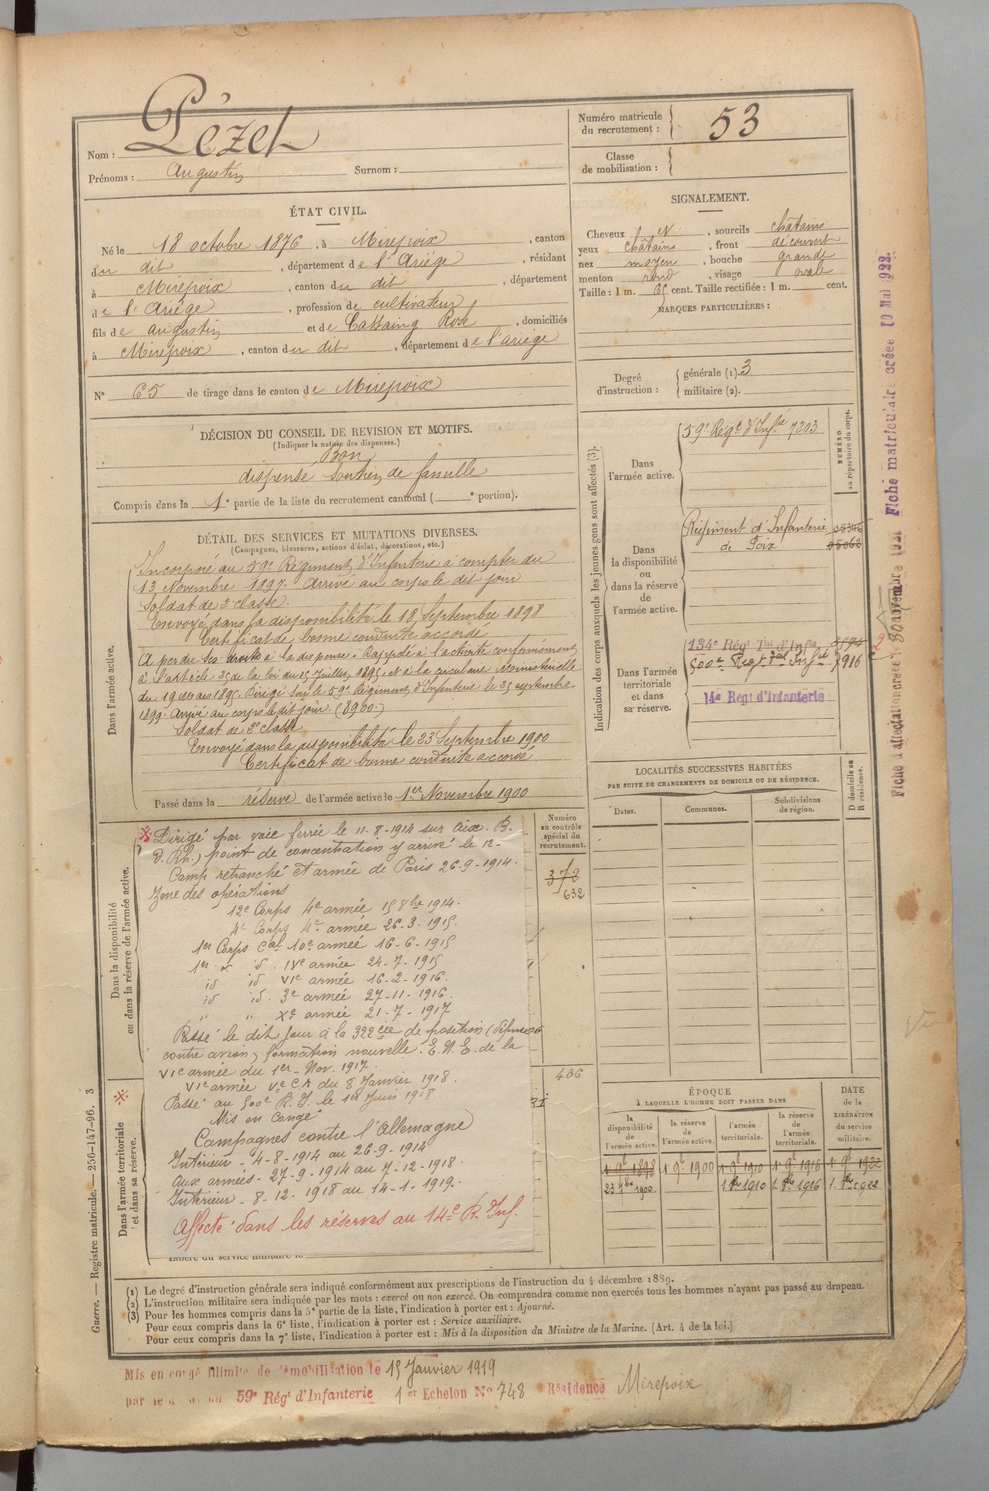 Nom : Pézet
Prénoms : Augustin Surnom :
Numéro matricule du recrutement : 53
Classe de mobilisation :
ÉTAT CIVIL.
Né le 18 octobre 1876, à Mirepoix, canton
du dit, département de l'Ariège, résidant
à Mirepoix, canton du dit, département
de l'Ariège, profession de cultivateur
fils de Augustin et de Cassaing Rose, domiciliés
à Mirepoix, canton du dit, département de l'ariège
N° 65 de tirage dans le canton de Mirepoix
DÉCISION DU CONSEIL DE REVISION ET MOTIFS.
(Indiquer la nature des dispenses.)
Bon
dispensé soutien de famille
Compris dans la 1e partie de la liste du recrutement cantonal ( e portion).
DÉTAIL DES SERVICES ET MUTATIONS DIVERSES.
(Campagnes, blessures, actions d'éclat, décorations, etc.)
Dans l'armée active.
Incorporé au 59e Régiment d'Infanterie à compter du
13 Novembre 1897. Arrivé au corps le dit jour
Soldat de 2e classe.
Envoyé dans la disponibilité le 18 Septembre 1898
Certificat de bonne conduite accordé
A perdu ses droits à la dispense. Rappelé à l'activité conformément
à l'article 35 de la loi du 15 Juillet 1889 et à la circulaire Ministérielle
du 19 mars 1895. Dirigé sur le 59e Régiment d'Infanterie le 25 septembre
1899. Arrivé au corps le dit jour. (8960.)
Soldat de 2e classe
Envoyé dans la disponibilité le 23 Septembre 1900
Certificat de bonne conduite accordé
Passé dans la réserve de l'armée active le 1er Novembre 1900
Dans la disponibilité ou dans la réserve de l'armée active.
Dirigé par voie ferrée le 11-8-1914 sur Aix. B.
d. Rh.) point de concentration y arrivé le 12-
Camp retranché et armée de Paris 26-9-1914.
Zone des opérations
12e Corps 4e armée 15 8bre 1914.
4e Corps 4e armée 26-3-1915.
1er Corps Cal 10e armée 16-6-1915
1er d° id. IVe armée 24-7-1915
id id. VIe armée 16-2-1916.
id id. 3e armée 27-11-1916.
" " Xe armée 21-7-1917
Passé le dit jour à la 322 Cie de position (défense
contre avion) formation nouvelle. E.N.E. de la
VIe armée du 1er Nov. 1917.
VIe armée Ve C.A du 8 Janvier 1918.
Passé au 500e R.I. le 1er Juin 1918
Mis en Congé
Campagnes contre l'Allemagne
Intérieur - 4-8-1914 au 26-9-1914
Aux armées - 27-9-1914 au 7-12-1918.
Intérieur - 8-12-1918 au 14-1-1919.
Affecté dans les réserves au 14e R. Inf.
Dans l'armée territoriale et dans sa réserve.
Libéré du service militaire le
Numéro au contrôle spécial du recrutement.
373
632
406
SIGNALEMENT.
Cheveux N, sourcils châtains
yeux châtains, front découvert
nez moyen, bouche grande
menton rond, visage ovale
Taille : 1 m. 65 cent. Taille rectifiée : 1 m. cent.
MARQUES PARTICULIÈRES :
Degré d'instruction : générale (1). 3
militaire (2).
Indication des corps auxquels les jeunes gens sont affectés (3).
NUMÉRO au répertoire du corps.
Dans l'armée active.
59e Regt d'Infie 7203
Dans la disponibilité ou dans la réserve de l'armée active.
Régiment d'Infanterie de Foix
05062
Dans l'armée territoriale et dans sa réserve.
134e Régt Tal d'Infie
500e Regt Tal Infie 7916
14e Regt d'Infanterie
LOCALITÉS SUCCESSIVES HABITÉES
PAR SUITE DE CHANGEMENTS DE DOMICILE OU DE RÉSIDENCE.
Dates. Communes. Subdivisions de région. D domicile ou R résidence.
ÉPOQUE
À LAQUELLE L'HOMME DOIT PASSER DANS
DATE de la LIBÉRATION du service militaire.
la disponibilité de l'armée active. la réserve de l'armée active. l'armée territoriale. la réserve de l'armée territoriale.
1 9e 1898 1 9e 1900 1 9e 1910 1 9e 1916 1 9e 1922
23 7bre 1900 1 8bre 1910 1 8bre 1916 1 8bre 1922
Fiche matriculaire créée 10 Mai 1922.
Guerre. — Registre matricule. — 250-147-96. 3
(1) Le degré d'instruction générale sera indiqué conformément aux prescriptions de l'instruction du 4 décembre 1889.
(2) L'instruction militaire sera indiquée par les mots : exercé ou non exercé. On comprendra comme non exercés tous les hommes n'ayant pas passé au drapeau.
(3) Pour les hommes compris dans la 5e partie de la liste, l'indication à porter est : Ajourné.
Pour ceux compris dans la 6e liste, l'indication à porter est : Service auxiliaire.
Pour ceux compris dans la 7e liste, l'indication à porter est : Mis à la disposition du Ministre de la Marine. (Art. 4 de la loi.)
Mis en congé illimité de démobilisation le 15 Janvier 1919
59e Régt d'Infanterie 1er Echelon N° 748 Résidence Mirepoix